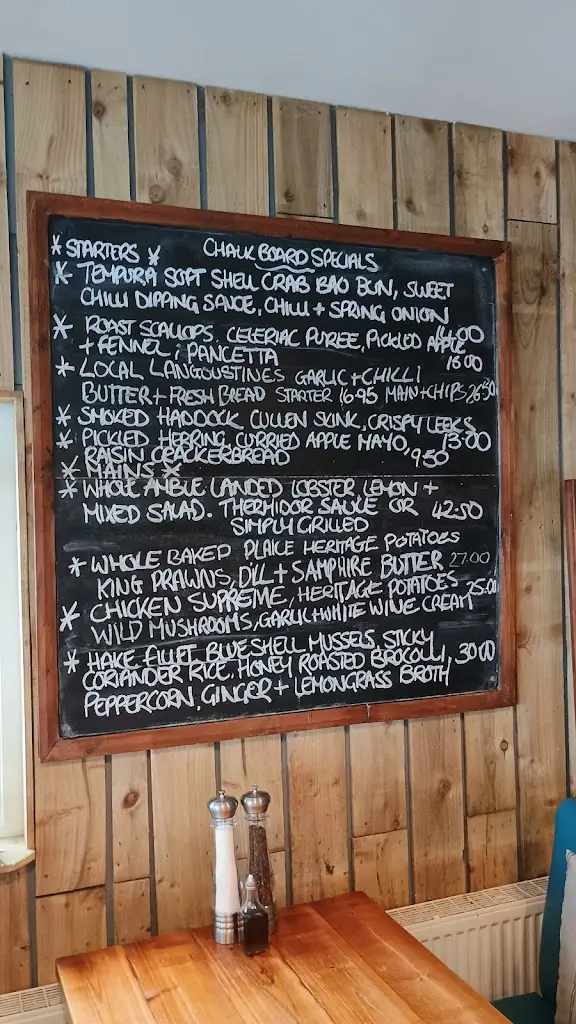 *STARTERS * CHALKBOARD SPECIALS
* TEMPURA SOFT SHELL CRAB BAO BUN, SWEET
CHILLI DIPPING SAUCE, CHILLI + SPRING ONION
14.00
* ROAST SCALLOPS. CELERIAC PUREE, PICKLED APPLE
+ FENNEL ; PANCETTA 15.00
* LOCAL LANGOUSTINES GARLIC + CHILLI
BUTTER + FRESH BREAD STARTER 16.95 MAIN + CHIPS 26.50
* SMOKED HADDOCK CULLEN SKINK, CRISPY LEEKS
13.00
* PICKLED HERRING CURRIED APPLE MAYO,
RAISIN CRACKERBREAD 9.50
* MAINS *
* WHOLE AMBLE LANDED LOBSTER LEMON +
MIXED SALAD. THERMIDOR SAUCE OR 42.50
SIMPLY GRILLED
* WHOLE BAKED PLAICE HERITAGE POTATOES
KING PRAWNS, DILL + SAMPHIRE BUTTER 27.00
* CHICKEN SUPREME, HERITAGE POTATOES 25.00
WILD MUSHROOMS, GARLIC + WHITE WINE CREAM
* HAKE FILLET BLUESHELL MUSSELS, STICKY
CORIANDER RICE, HONEY ROASTED BROCOLLI, 30.00
PEPPERCORN, GINGER + LEMONGRASS BROTH